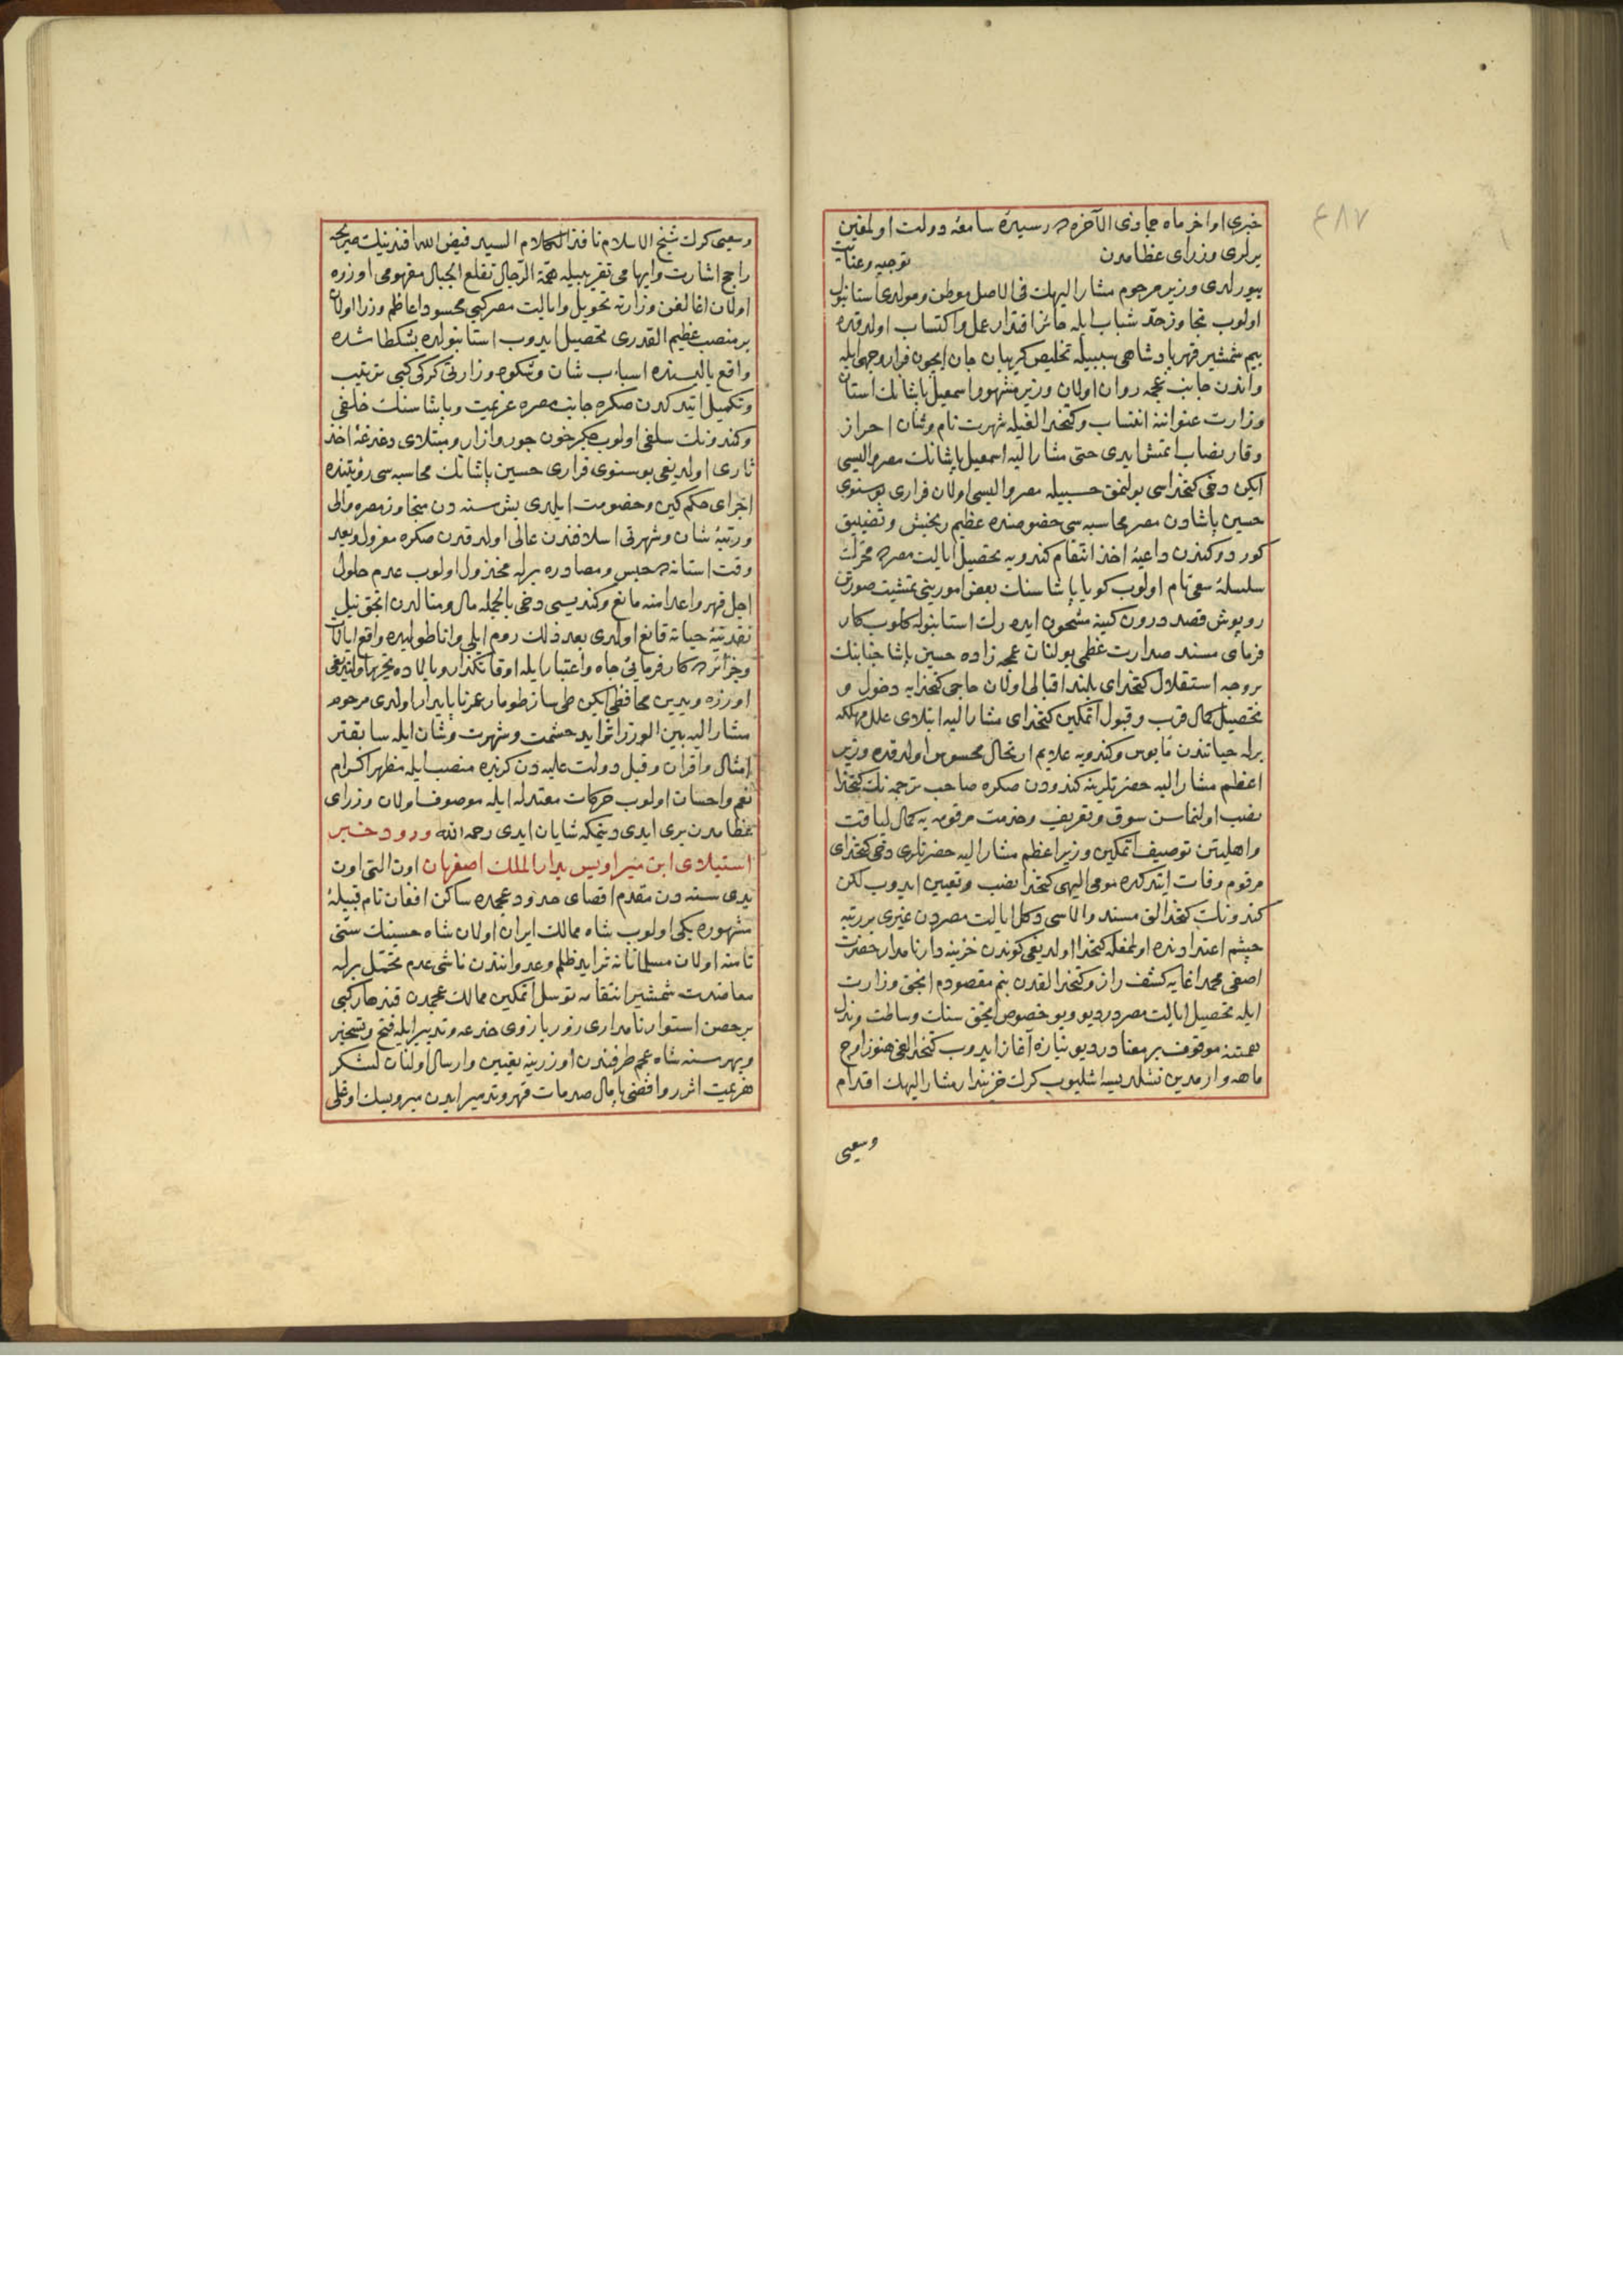 ٤٨٧
خبری اواخر ماه جماذی الآخره ده رسیدهٔ سامعهٔ دولت اولمغین
برلری وزرای عظامدن توجیه وعنایت
بیورلدی وزیر مرحوم مشار الیهك فی الاصل موطن ومولدی استانبول
اولوب تجاوز حد شباب ایله حائز اقتدار عمل واكتساب اولدقده
بیم شمشیر قهر پادشاهی سببیله تخلیص كریبان جان ایچون فرار وجهی ایله
واندن جانب عجمه روان اولان وزیر مشهور اسمعیل پاشانك استان
وزارت عنواننه انتساب وكتخدالغیله شهرت نام وشان احراز
وقار نصاب ایتمش ایدی حتی مشار الیه اسمعیل پاشانك مصر والیسی
ایكن دخی كتخداسی بولنمق حسبیله مصر والیسی اولان فراری بوسنوی
حسین پاشادن مصر محاسبه سی خصوصنده عظیم رنجش وتضییق
كوردوكندن داعیهٔ اخذ انتقام كندویه تحصیل ایالت مصره محرك
سلسلهٔ سعی تام اولوب كویا پاشاسنك بعض امورینی تمشیت صورتن
روپوش قصد درون كینه مشحون ایدەرك استانبوله كلوب كار
فرمای مسند صدارت عظمی بولنان عمجه زاده حسین پاشا جنابنك
بروجه استقلال كتخدای بلند اقبالی اولان حاجی كتخدایه دخول و
تحصیل كمال قرب وقبول اتمكین كتخدای مشار الیه ابتلای علل مهلكه
برله حیاتندن مأیوس وكندویه علایم ارتحال محسوس اولدقده وزیر
اعظم مشار الیه حضرتلرینه كندودن صكره صاحب ترجمه نك كتخدا
نصب اولنماسن سوق وتعریف وخدمت مرقومه یه كمال لیاقت
واهلیتن توصیف اتمكین وزیر اعظم مشار الیه حضرتلری دخی كتخدای
مرقوم وفات ایتدكده مومی الیهی كتخدا نصب وتعیین ایدوب لكن
كندونك كتخدالق مسند والاسی دكل ایالت مصردن غیری بر رتبه
چشم اعتدادنده اولمغله كتخدا اولدیغی كوندن خزینه دار نامدار حضرت
اصفی محمد اغایه كشف راز وكتخدالقدن بنم مقصودم انجق وزارت
ایله تحصیل ایالت مصردر دیو وبو خصوص انجق سنك وساطت وبذل
همتنه موقوف بر معنادر دیو نیازه آغاز ایدوب كتخدالغی هنوز اوچ
ماهه وارمدین نشلدیسه اشلیوب كرك خزیندار مشار الیهك اقدام
وسعیی
وسعیی كرك شیخ الاسلام نافذ الكلام السید فیض الله افندینك صریحه
راجح اشارت وایهامی تقریبیله همة الرجال تقلع الجبال مفهومی اوزره
اولان اغالغن وزارته تحویل وایالت مصر كبی محسود اعاظم وزرا اولان
بر منصب عظیم القدری تحصیل ایدوب استانبولده بشكطاشده
واقع یالیسنده اسباب شان وشكوه وزارتی كركی كبی ترتیب
وتكمیل ایتدكدن صكره جانب مصره عزیمت وپاشاسنك خلفی
وكندونك سلفی اولوب جكرخون جور وازار ومبتلای دغدغهٔ اخذ
ثاری اولدیغی بوسنوی فراری حسین پاشانك محاسبه سی رؤیتنده
اجرای حكم كین وخصومت ایلدی بش سنه دن متجاوز مصره والی
ورتبهٔ شان وشهرتی اسلافندن عالی اولدقدن صكره معزول وبعد
وقت استانه ده حبس ومصادره برله مخذول اولوب عدم حلول
اجل قهر واعدامنه مانع وكندیسی دخی بالجمله مال ومنالدن انجق نیل
نقدینهٔ حیاته قانع اولدی بعد ذلك روم ایلی واناطولیده واقع ایالات
وجزائرده كارفرمائی جاه واعتبار ایله اوقاتكذار وبالاده تحریر اولندیغی
اوزره ویدین محافظی ایكن طی ساز طومار عمر ناپایدار اولدی مرحوم
مشار الیه بین الوزرا تزاید حشمت وشهرت وشان ایله سابقتر
امثال واقران وقبل دولت علیه دن كزیده منصب ایله مظهر اكرام
نعم واحسان اولوب حركات معتدله ایله موصوف اولان وزرای
عظامدن بری ایدی دینمكه شایان ایدی رحمه الله ورود خبر
استیلای ابن میر اویس بدار الملك اصفهان اون التی اون
یدی سنه دن مقدم اقصای حدود عجمده ساكن افغان نام قبیلهٔ
مشهوره بكی اولوب شاه ممالك ایران اولان شاه حسینك سنی
نامنه اولان مسلمانانه تزاید ظلم وعدوانندن ناشی عدم تحمل برله
معاضدت شمشیر انتقامه توسل اتمكین ممالك عجمدن قندهار كبی
بر حصن استوار نامداری زور بازوی خدعه وتدبیر ایله فتح وتسخیر
وبهر سنه شاه عجم طرفندن اوزرینه تعیین وارسال اولنان لشكر
هزیمت اثر روافضی پایمال صدمات قهر وتدمیر ایدن میرویسك اوغلی